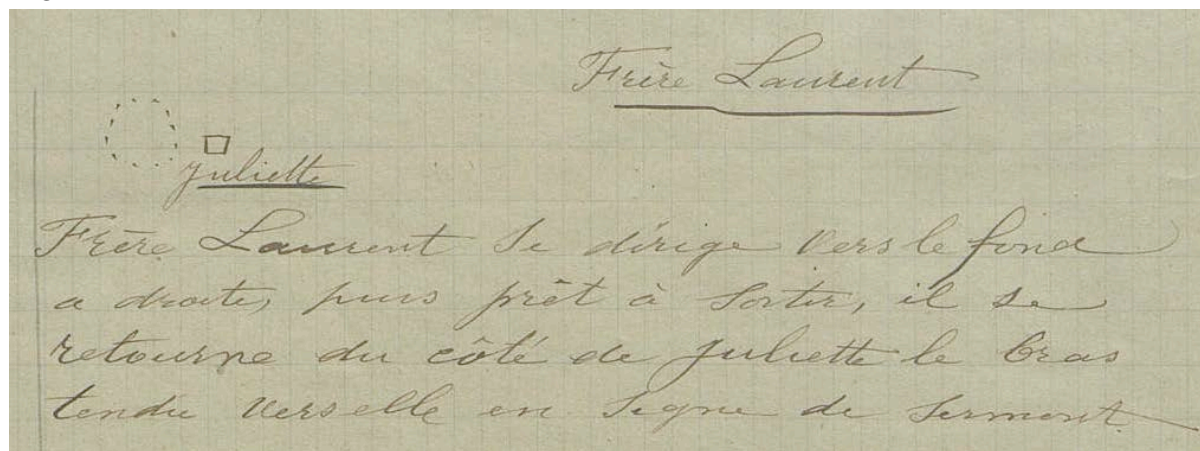 Frère Laurent
Juliette
Frère Laurent se dirige vers le fond
a droite, puis prêt à sortir, il se
retourne du côté de Juliette le bras
tendu vers elle en signe de serment.